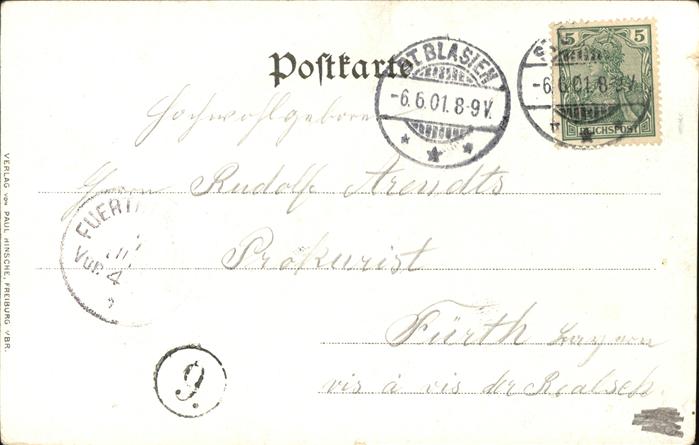 Postkarte
ST BLASIEN
-6.6.01.8-9V.
5 5
REICHSPOST
-6.6.01.8-9V.
Hochwohlgeboren
Herrn Rudolf Arendts
Prokurist
Fürth Bayern
vis à vis der Realsch.
FUERTH
Vor. 4
9.
VERLAG von PAUL HINSCHE, FREIBURG i/BR.